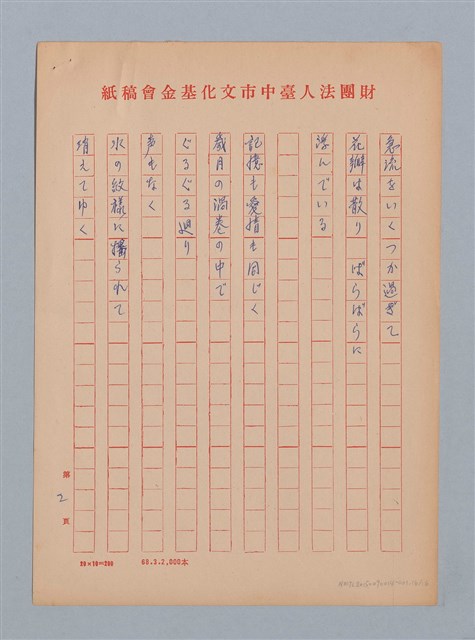 財團法人臺中市文化基金會稿紙
急流をいくつか過ぎて
花瓣は散り ばらばらに
浮んでいる
記憶も愛情も同じく
歳月の渦巻の中で
ぐるぐる廻り
声もなく
水の紋様に揺られて
消えてゆく
第2頁
20×10=200
63.3.2,000本